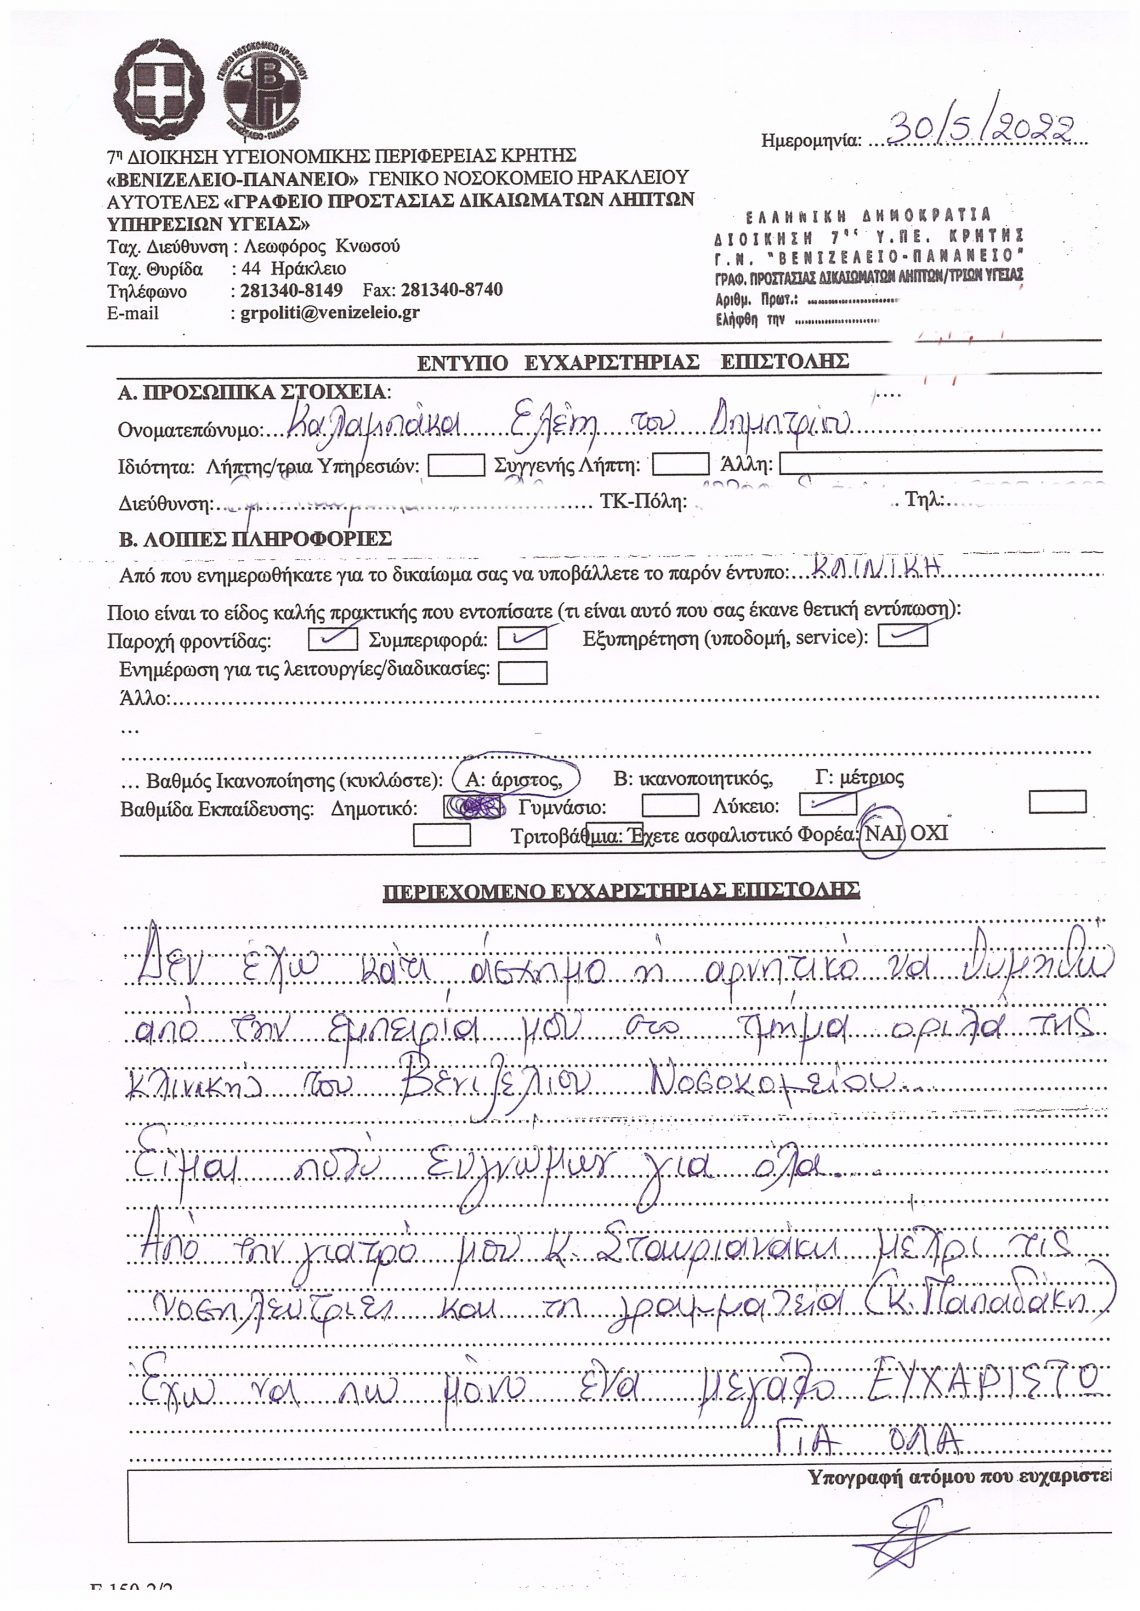 ΓΕΝΙΚΟ ΝΟΣΟΚΟΜΕΙΟ ΗΡΑΚΛΕΙΟΥ
ΒΠ
ΒΕΝΙΖΕΛΕΙΟ-ΠΑΝΑΝΕΙΟ
Ημερομηνία: 30/5/2022
7η ΔΙΟΙΚΗΣΗ ΥΓΕΙΟΝΟΜΙΚΗΣ ΠΕΡΙΦΕΡΕΙΑΣ ΚΡΗΤΗΣ
«ΒΕΝΙΖΕΛΕΙΟ-ΠΑΝΑΝΕΙΟ» ΓΕΝΙΚΟ ΝΟΣΟΚΟΜΕΙΟ ΗΡΑΚΛΕΙΟΥ
ΑΥΤΟΤΕΛΕΣ «ΓΡΑΦΕΙΟ ΠΡΟΣΤΑΣΙΑΣ ΔΙΚΑΙΩΜΑΤΩΝ ΛΗΠΤΩΝ
ΥΠΗΡΕΣΙΩΝ ΥΓΕΙΑΣ»
Ταχ. Διεύθυνση : Λεωφόρος Κνωσού
Ταχ. Θυρίδα : 44 Ηράκλειο
Τηλέφωνο : 281340-8149 Fax: 281340-8740
E-mail : grpoliti@venizeleio.gr
ΕΛΛΗΝΙΚΗ ΔΗΜΟΚΡΑΤΙΑ
ΔΙΟΙΚΗΣΗ 7ης Υ.ΠΕ. ΚΡΗΤΗΣ
Γ.Ν. "ΒΕΝΙΖΕΛΕΙΟ-ΠΑΝΑΝΕΙΟ"
ΓΡΑΦ. ΠΡΟΣΤΑΣΙΑΣ ΔΙΚΑΙΩΜΑΤΩΝ ΛΗΠΤΩΝ/ΤΡΙΩΝ ΥΓΕΙΑΣ
Αριθμ. Πρωτ.: ..................
Ελήφθη την ..................
ΕΝΤΥΠΟ ΕΥΧΑΡΙΣΤΗΡΙΑΣ ΕΠΙΣΤΟΛΗΣ
Α. ΠΡΟΣΩΠΙΚΑ ΣΤΟΙΧΕΙΑ:
Ονοματεπώνυμο: Καλαμπάκα Ελένη του Δημητρίου
Ιδιότητα: Λήπτης/τρια Υπηρεσιών: Συγγενής Λήπτη: Άλλη:
Διεύθυνση: ΤΚ-Πόλη: Τηλ:
Β. ΛΟΙΠΕΣ ΠΛΗΡΟΦΟΡΙΕΣ
Από που ενημερωθήκατε για το δικαίωμα σας να υποβάλλετε το παρόν έντυπο: ΚΛΙΝΙΚΗ
Ποιο είναι το είδος καλής πρακτικής που εντοπίσατε (τι είναι αυτό που σας έκανε θετική εντύπωση):
Παροχή φροντίδας: ✓ Συμπεριφορά: ✓ Εξυπηρέτηση (υποδομή, service): ✓
Ενημέρωση για τις λειτουργίες/διαδικασίες:
Άλλο:
…
… Βαθμός Ικανοποίησης (κυκλώστε): Α: άριστος, Β: ικανοποιητικός, Γ: μέτριος
Βαθμίδα Εκπαίδευσης: Δημοτικό: Γυμνάσιο: Λύκειο: ✓
Τριτοβάθμια: Έχετε ασφαλιστικό Φορέα: ΝΑΙ ΟΧΙ
ΠΕΡΙΕΧΟΜΕΝΟ ΕΥΧΑΡΙΣΤΗΡΙΑΣ ΕΠΙΣΤΟΛΗΣ
Δεν έχω κάτι άσχημο ή αρνητικό να θυμηθώ
από την εμπειρία μου στο τμήμα της
κλινικής του Βενιζελίου Νοσοκομείου...
Είμαι πολύ ευγνώμων για όλα...
Από την γιατρό μου κ. Σταυριανάκη μέχρι τις
νοσηλεύτριες και τη γραμματεία (κ. Παπαδάκη)
Έχω να πω μόνο ένα μεγάλο ΕΥΧΑΡΙΣΤΩ
ΓΙΑ ΟΛΑ
Υπογραφή ατόμου που ευχαριστεί
Ε 150-2/2